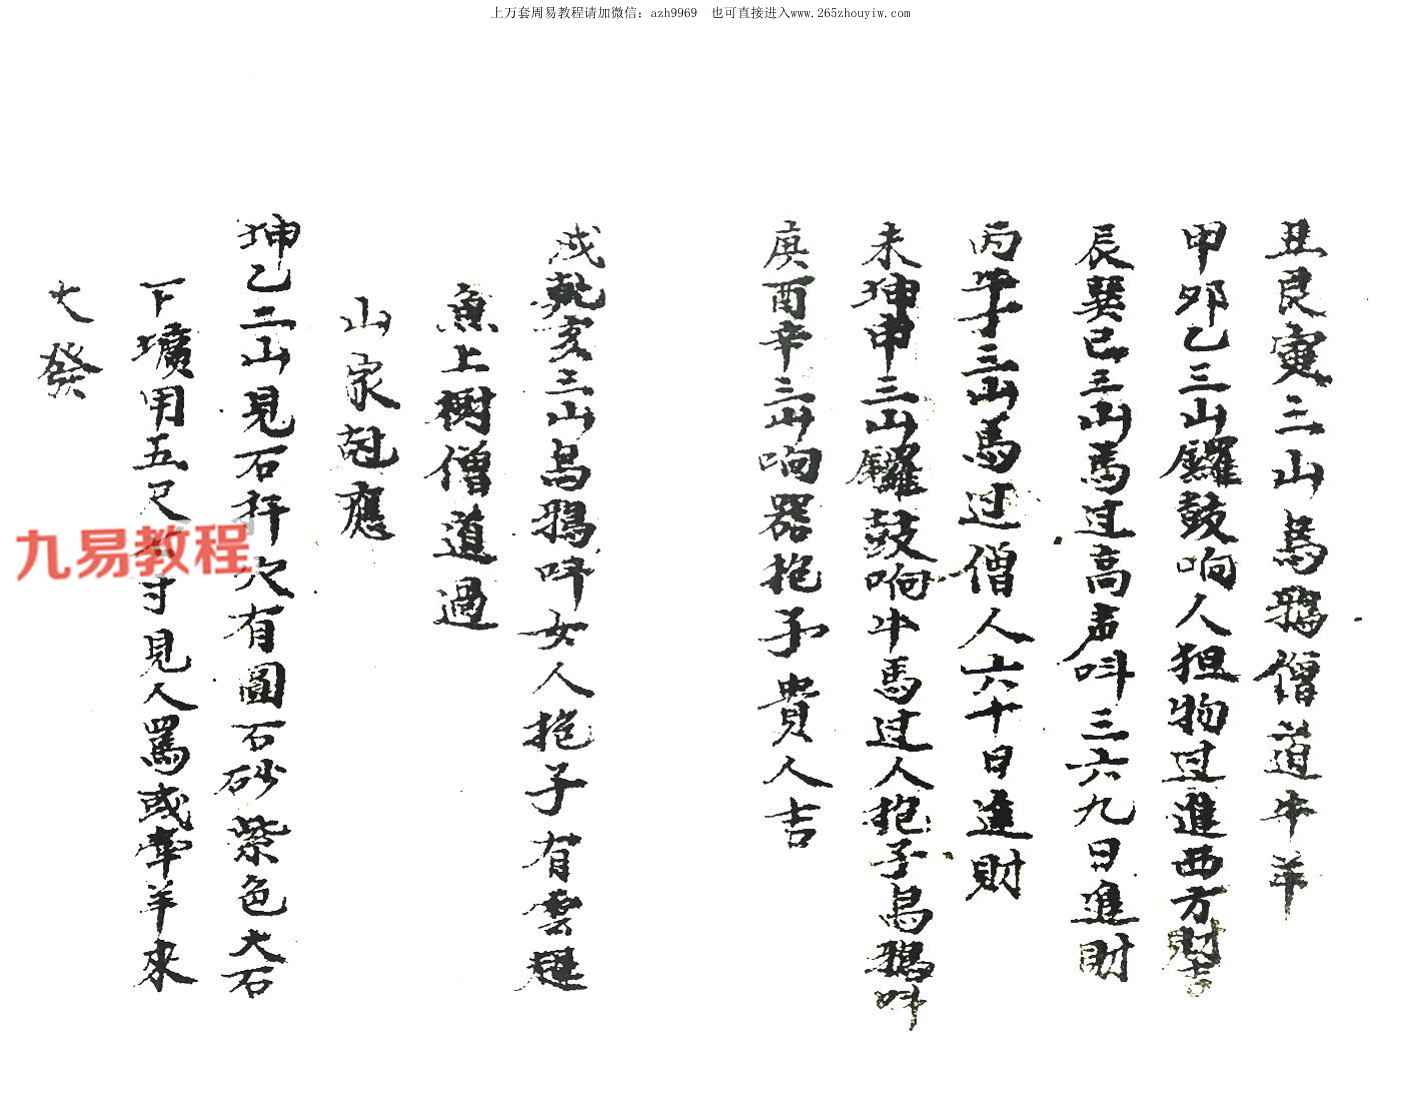 上万套周易教程请加微信：azh9969 也可直接进入www.265zhouyiw.com
丑艮寅三山烏鴉僧道牛羊
甲卯乙三山鑼鼓响人担物过進西方財吉
辰巽巳三山馬过高声叫三六九日進財
丙午丁三山馬过僧人六十日進財
未坤申三山鑼鼓响牛馬过人抱子烏鴉叫
庚酉辛三山响器抱子貴人吉
戌乾亥三山烏鴉叫女人抱子有雲
魚上樹僧道過
山家尅應
坤乙二山見石秤穴有圓石砂紫色大石
下壙用五尺寸見人罵或牽羊來
大發
九易教程